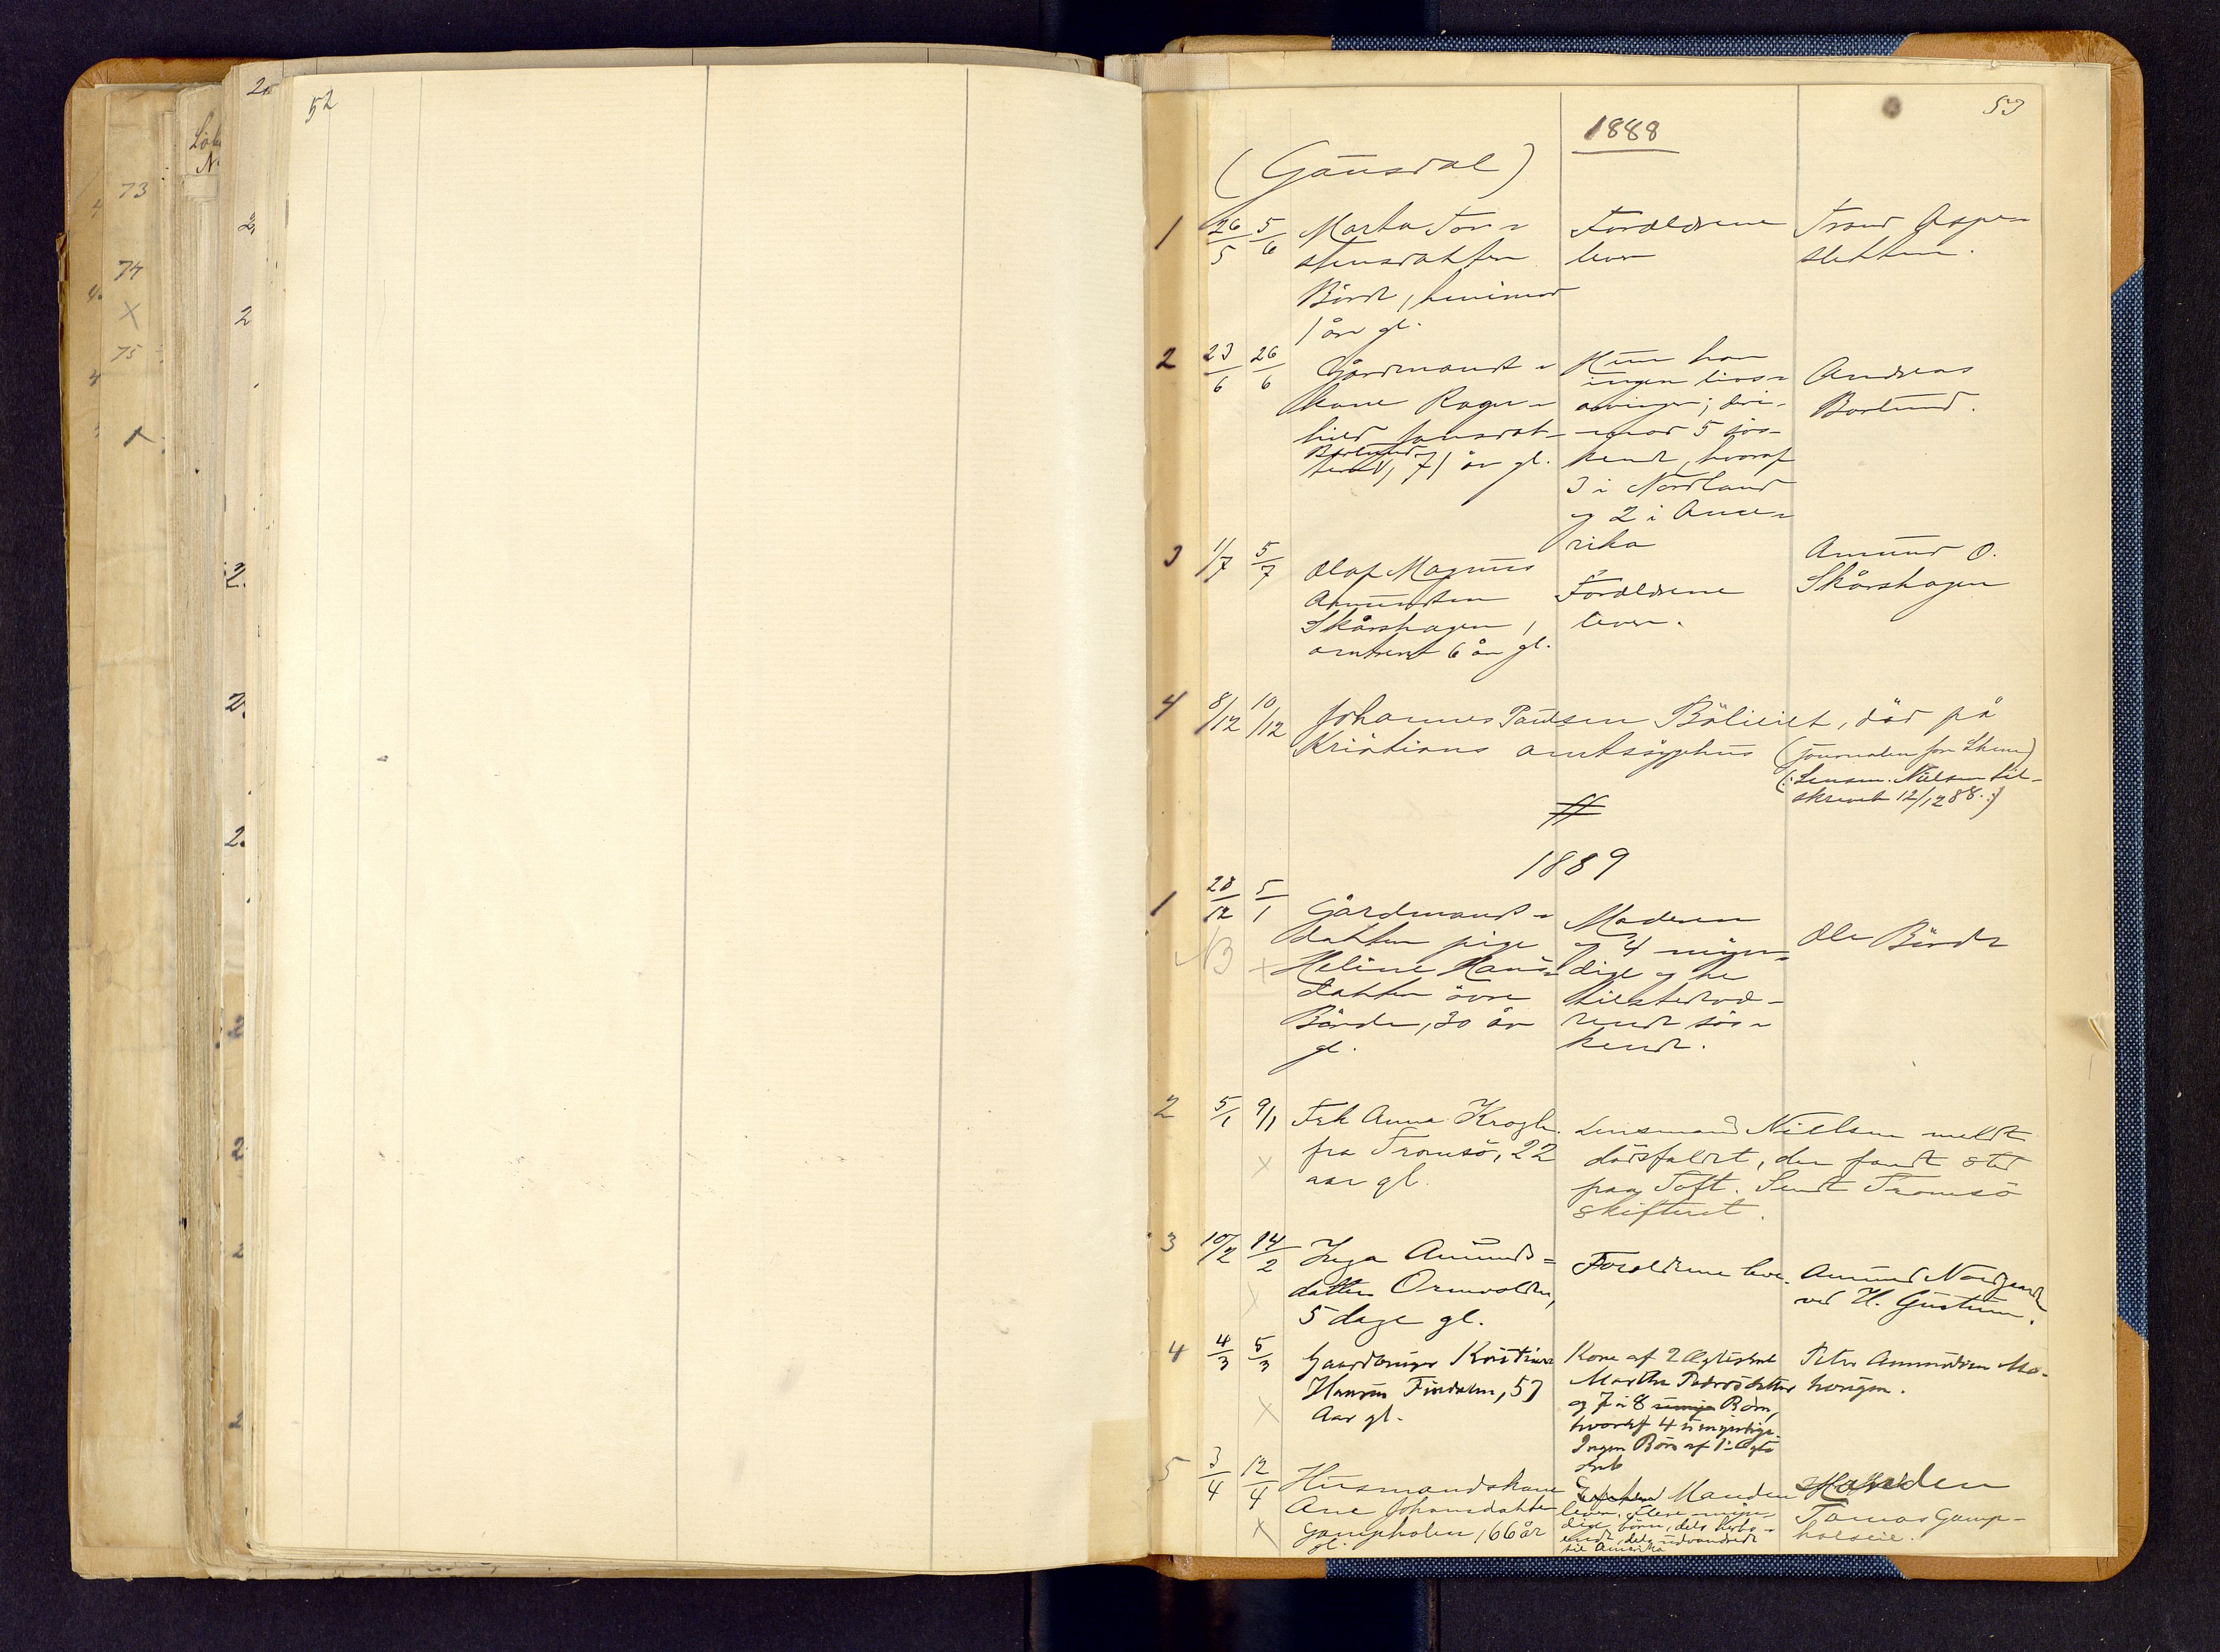 52
53
1888
(Gausdal)
1 26/5 5/6 Marta Tor=
stensdatter
Börde, henimod
1 år gl.
Forældrene
lever
Trond Aspes=
sletten.
2 23/6 26/6 Gårdmands=
kone Ragn=
hild Jonsdat=
Børlund
ter, 71 år gl.
Hun har
ingen livs=
arvinger; deri=
mod 5 søs=
kende, hvoraf
3 i Nordland
og 2 i Ame=
rika
Andreas
Børlund.
3 1/7 5/7 Olaf Magnus
Amundsen
Skårshagen,
omtrent 6 år gl.
Forældrene
lever.
Amund O.
Skårshagen
4 8/12 10/12 Johannes Paulsen Böliviet, död på
Kristians amtssygehus
(journalen for
(: Lensm. Nielsen til=
skrevet 12/12 88. :)
1889
1 28/12 5/1 Gårdmands=
NB
datter pige
Heline Hans=
datter övre
Börde, 30 år
gl.
Moderen
og 4 myn=
dige og her
tilstedevæ=
rende søs=
kende.
Ole Börde
2 5/1 9/1 Frk Anna Krogh
fra Tromsö, 22
aar gl.
Lensmand Nielsen meldt
dödsfaldet, der fandt sted
paa Toft. Sendt Tromsö
skifteret.
3 10/2 14/2 Inga Amunds=
datter Ormvolden,
5 dage gl.
Forældrene leve.
Amund Nordgaard
ved H. Gustum.
4 4/3 5/3 Gaardbruger Kristian
Hansen Findalen, 57
Aar gl.
Kone af 2 Ægteskab
Marthe Pedersdatter
og 7 a 8 Børn,
hvoraf 4 umyndige.
Ingen Børn af 1. Ægte
skab
Peter Amundsen Mo=
havgen.
5 3/4 12/4 Husmandskone
Ane Johansdatter
Gampholen, 66 år
gl.
Manden
lever. Flere myn=
dige börn, dels herbo=
ende, dels udvandrede
til Amerika
Manden
Tomas Gamp=
holseie.
73
74
75